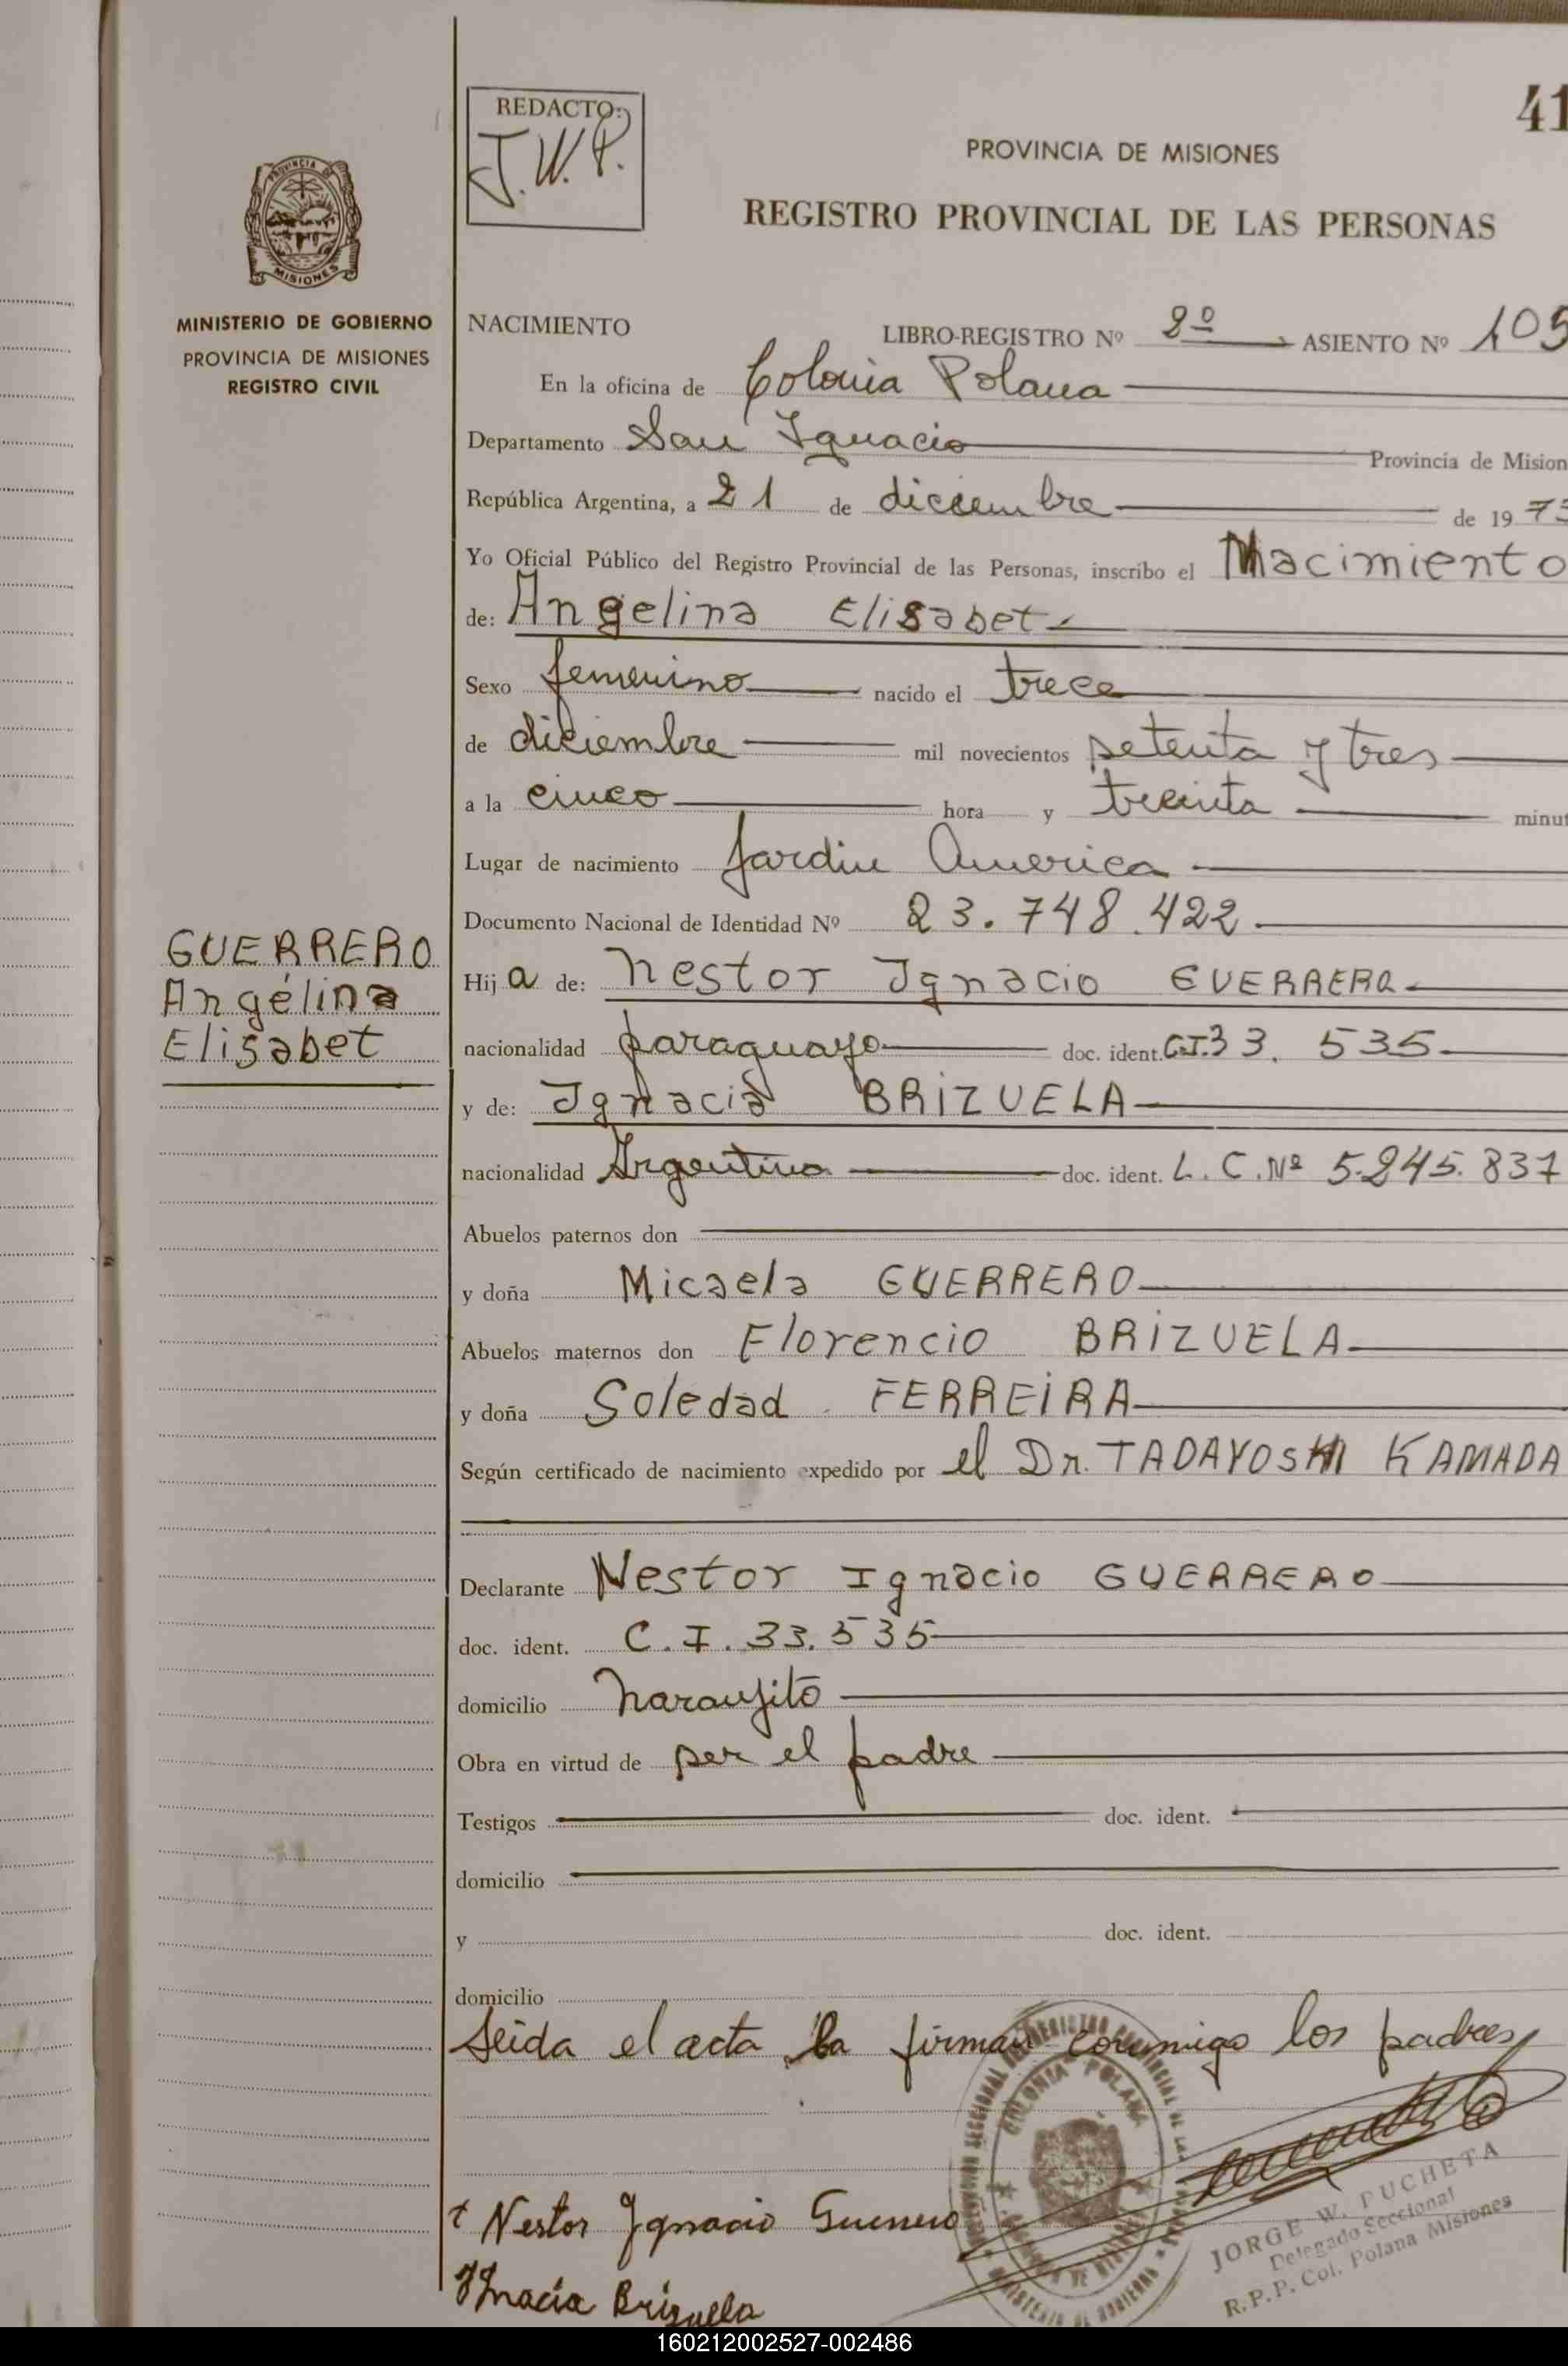 41
REDACTO:
J.W.P.
PROVINCIA DE MISIONES
REGISTRO PROVINCIAL DE LAS PERSONAS
PROVINCIA DE
MISIONES
MINISTERIO DE GOBIERNO
PROVINCIA DE MISIONES
REGISTRO CIVIL
NACIMIENTO LIBRO-REGISTRO Nº 2º ASIENTO Nº 105
En la oficina de Colonia Polana
Departamento San Ignacio Provincia de Mision
República Argentina, a 21 de diciembre de 19 73
Yo Oficial Público del Registro Provincial de las Personas, inscribo el Nacimiento
de: Angelina Elisabet
Sexo femenino nacido el trece
de diciembre mil novecientos setenta y tres
a la cinco hora y treinta minut
Lugar de nacimiento Jardin America
Documento Nacional de Identidad Nº 23.748.422
GUERRERO
Angelina
Elisabet
Hij a de: Nestor Ignacio GUERRERO
nacionalidad paraguayo doc. ident. C.I. 33.535
y de: Ignacia BRIZUELA
nacionalidad Argentina doc. ident. L.C.Nº 5.245.837
Abuelos paternos don
y doña Micaela GUERRERO
Abuelos maternos don Florencio BRIZUELA
y doña Soledad FERREIRA
Según certificado de nacimiento expedido por el Dr. TADAYOSHI KAMADA
Declarante Nestor Ignacio GUERRERO
doc. ident. C.I. 33.535
domicilio Naranjito
Obra en virtud de ser el padre
Testigos doc. ident.
domicilio
y doc. ident.
domicilio
Leida el acta la firman conmigo los padres
COLONIA POLANA
JORGE W. PUCHETA
Delegado Seccional
R.P.P. Col. Polana Misiones
Nestor Ignacio Guerrero
Ygnacia Brizuela
160212002527-002486